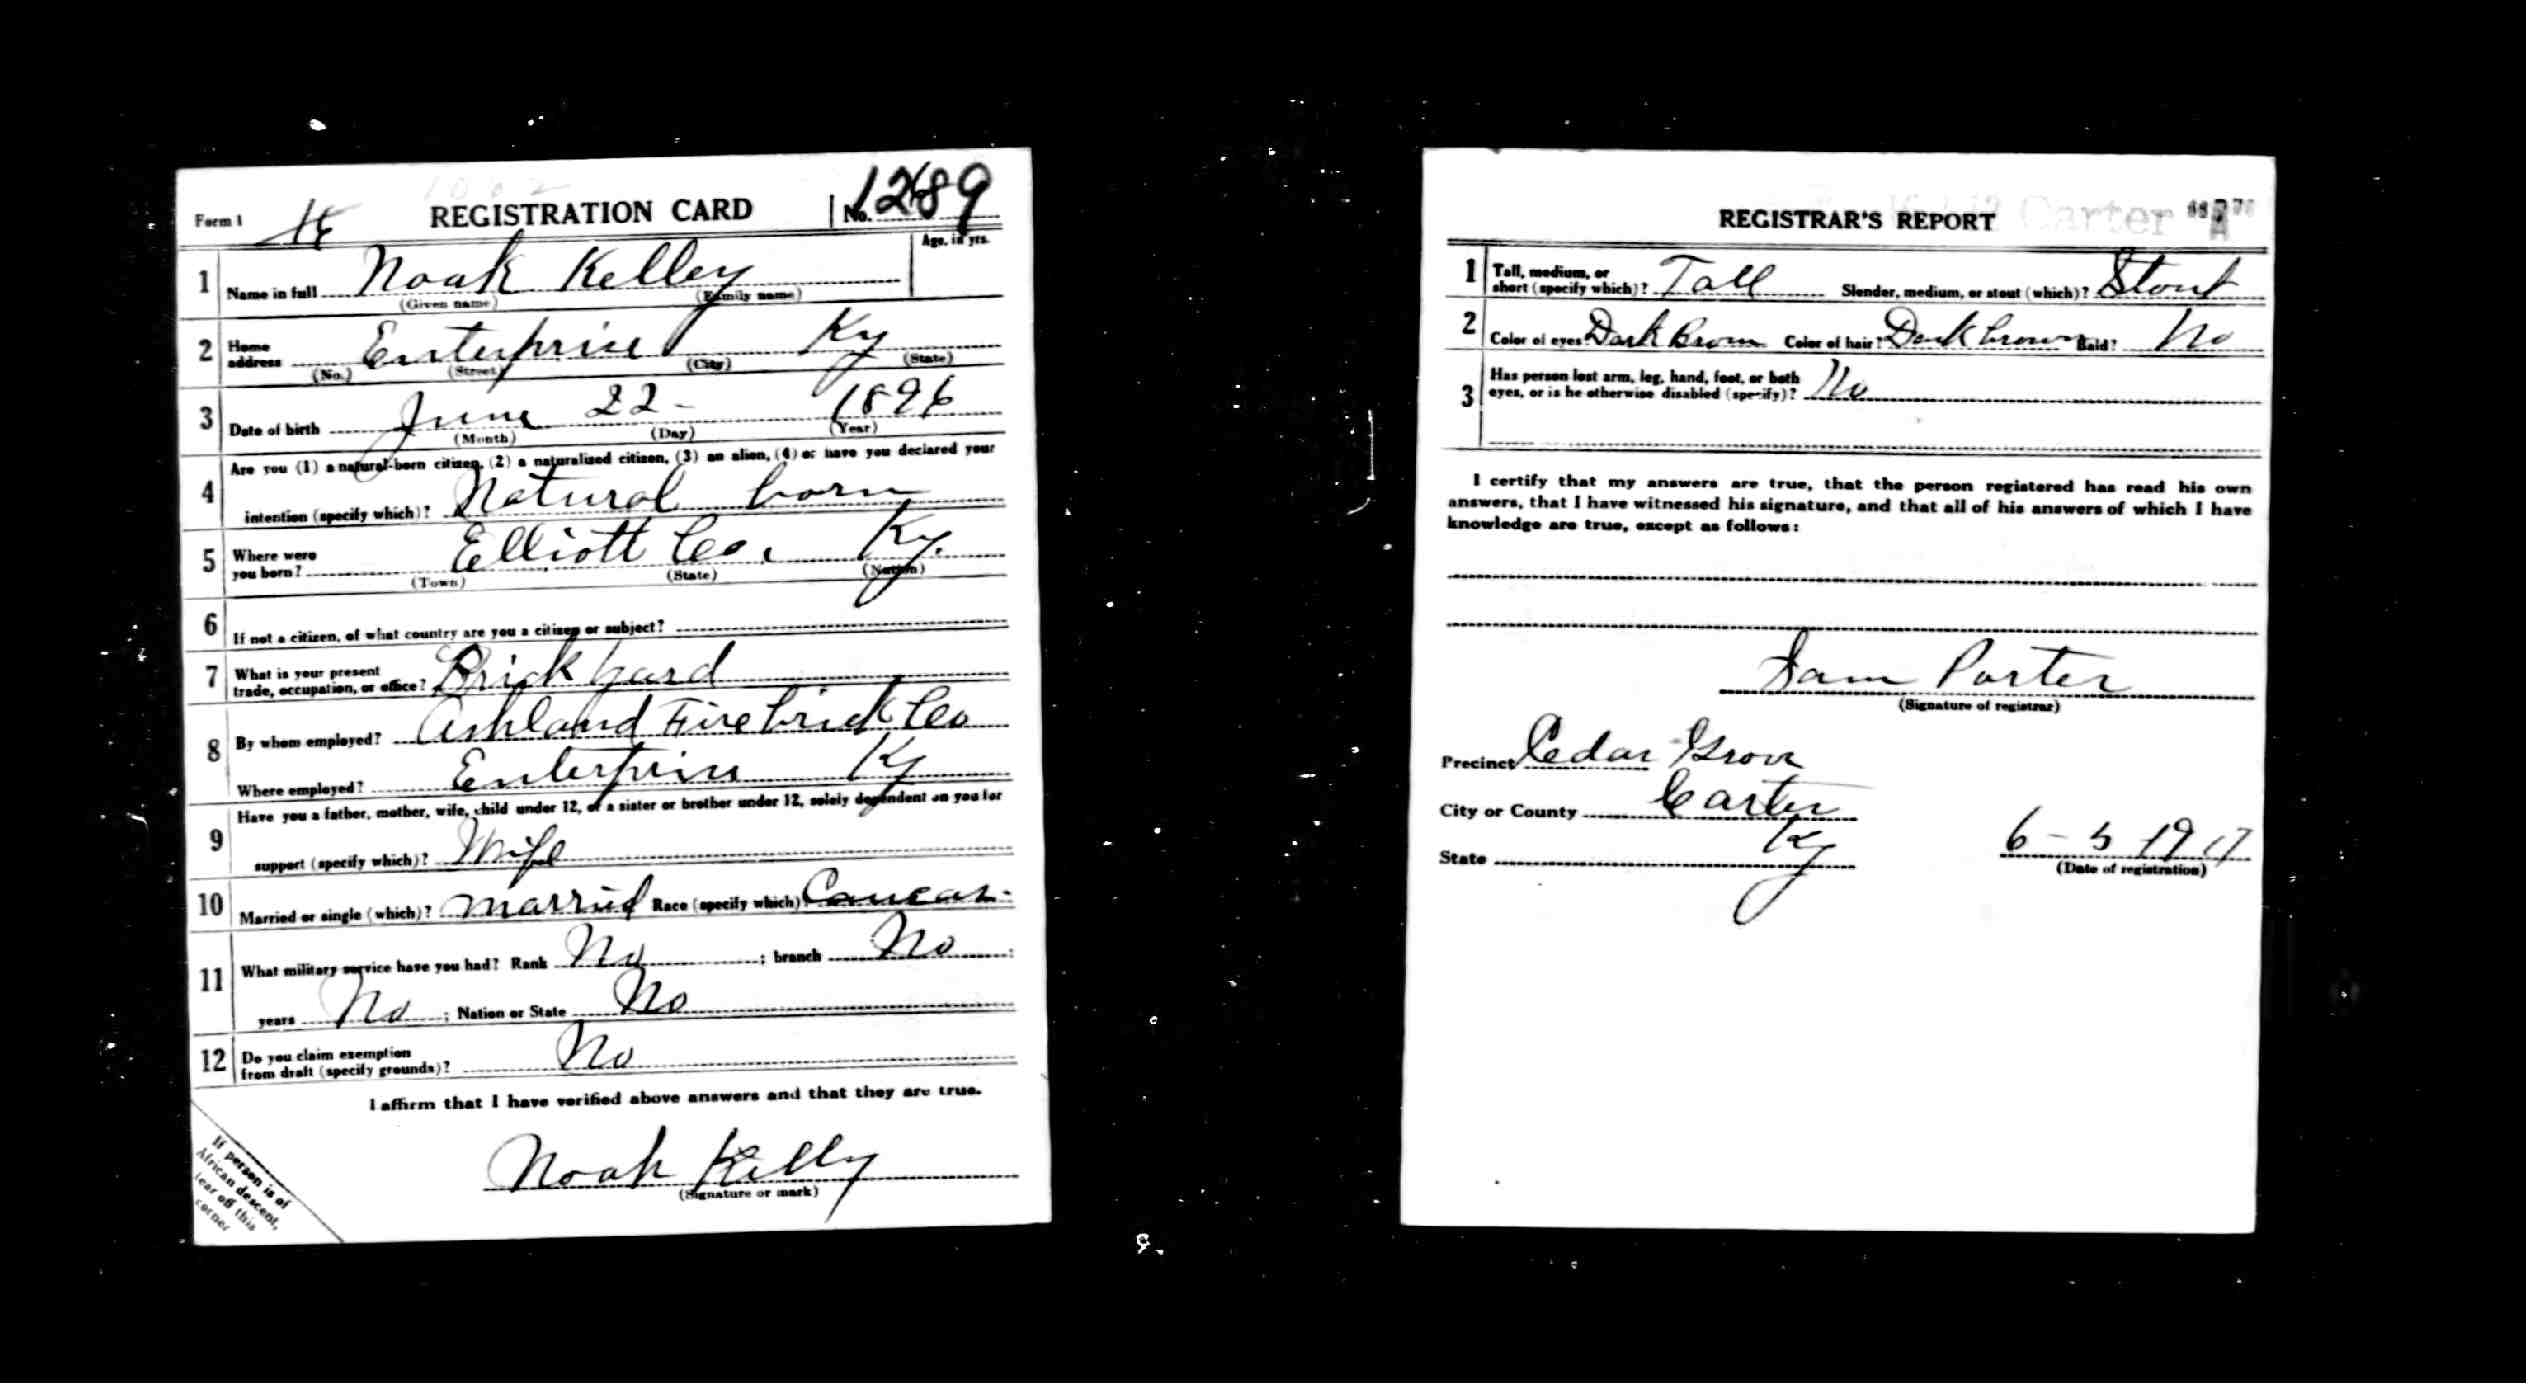 Form 1 REGISTRATION CARD No. 1289
Age, in yrs.
1 Name in full Noah Kelley
(Given name) (Family name)
2 Home address Enterprise Ky
(No.) (Street) (City) (State)
3 Date of birth June 22 - 1896
(Month) (Day) (Year)
4 Are you (1) a natural-born citizen, (2) a naturalized citizen, (3) an alien, (4) or have you declared your
intention (specify which)? Natural born
5 Where were you born? Elliott Co. Ky.
(Town) (State) (Nation)
6 If not a citizen, of what country are you a citizen or subject?
7 What is your present trade, occupation, or office? Brick yard
8 By whom employed? Ashland Fire brick Co
Where employed? Enterprise Ky
9 Have you a father, mother, wife, child under 12, or a sister or brother under 12, solely dependent on you for
support (specify which)? Wife
10 Married or single (which)? married Race (specify which) Caucas-
11 What military service have you had? Rank No ; branch No ;
years No ; Nation or State No
12 Do you claim exemption from draft (specify grounds)? No
I affirm that I have verified above answers and that they are true.
Noah Kelly
(Signature or mark)
If person is of
African descent,
tear off this
corner
REGISTRAR'S REPORT Carter
1 Tall, medium, or short (specify which)? Tall Slender, medium, or stout (which)? Stout
2 Color of eyes Dark Brown Color of hair? Dark brown Bald? No
3 Has person lost arm, leg, hand, foot, or both
eyes, or is he otherwise disabled (specify)? No
I certify that my answers are true, that the person registered has read his own
answers, that I have witnessed his signature, and that all of his answers of which I have
knowledge are true, except as follows:
Sam Porter
(Signature of registrar)
Precinct Cedar Grove
City or County Carter
State Ky 6-5 1917
(Date of registration)